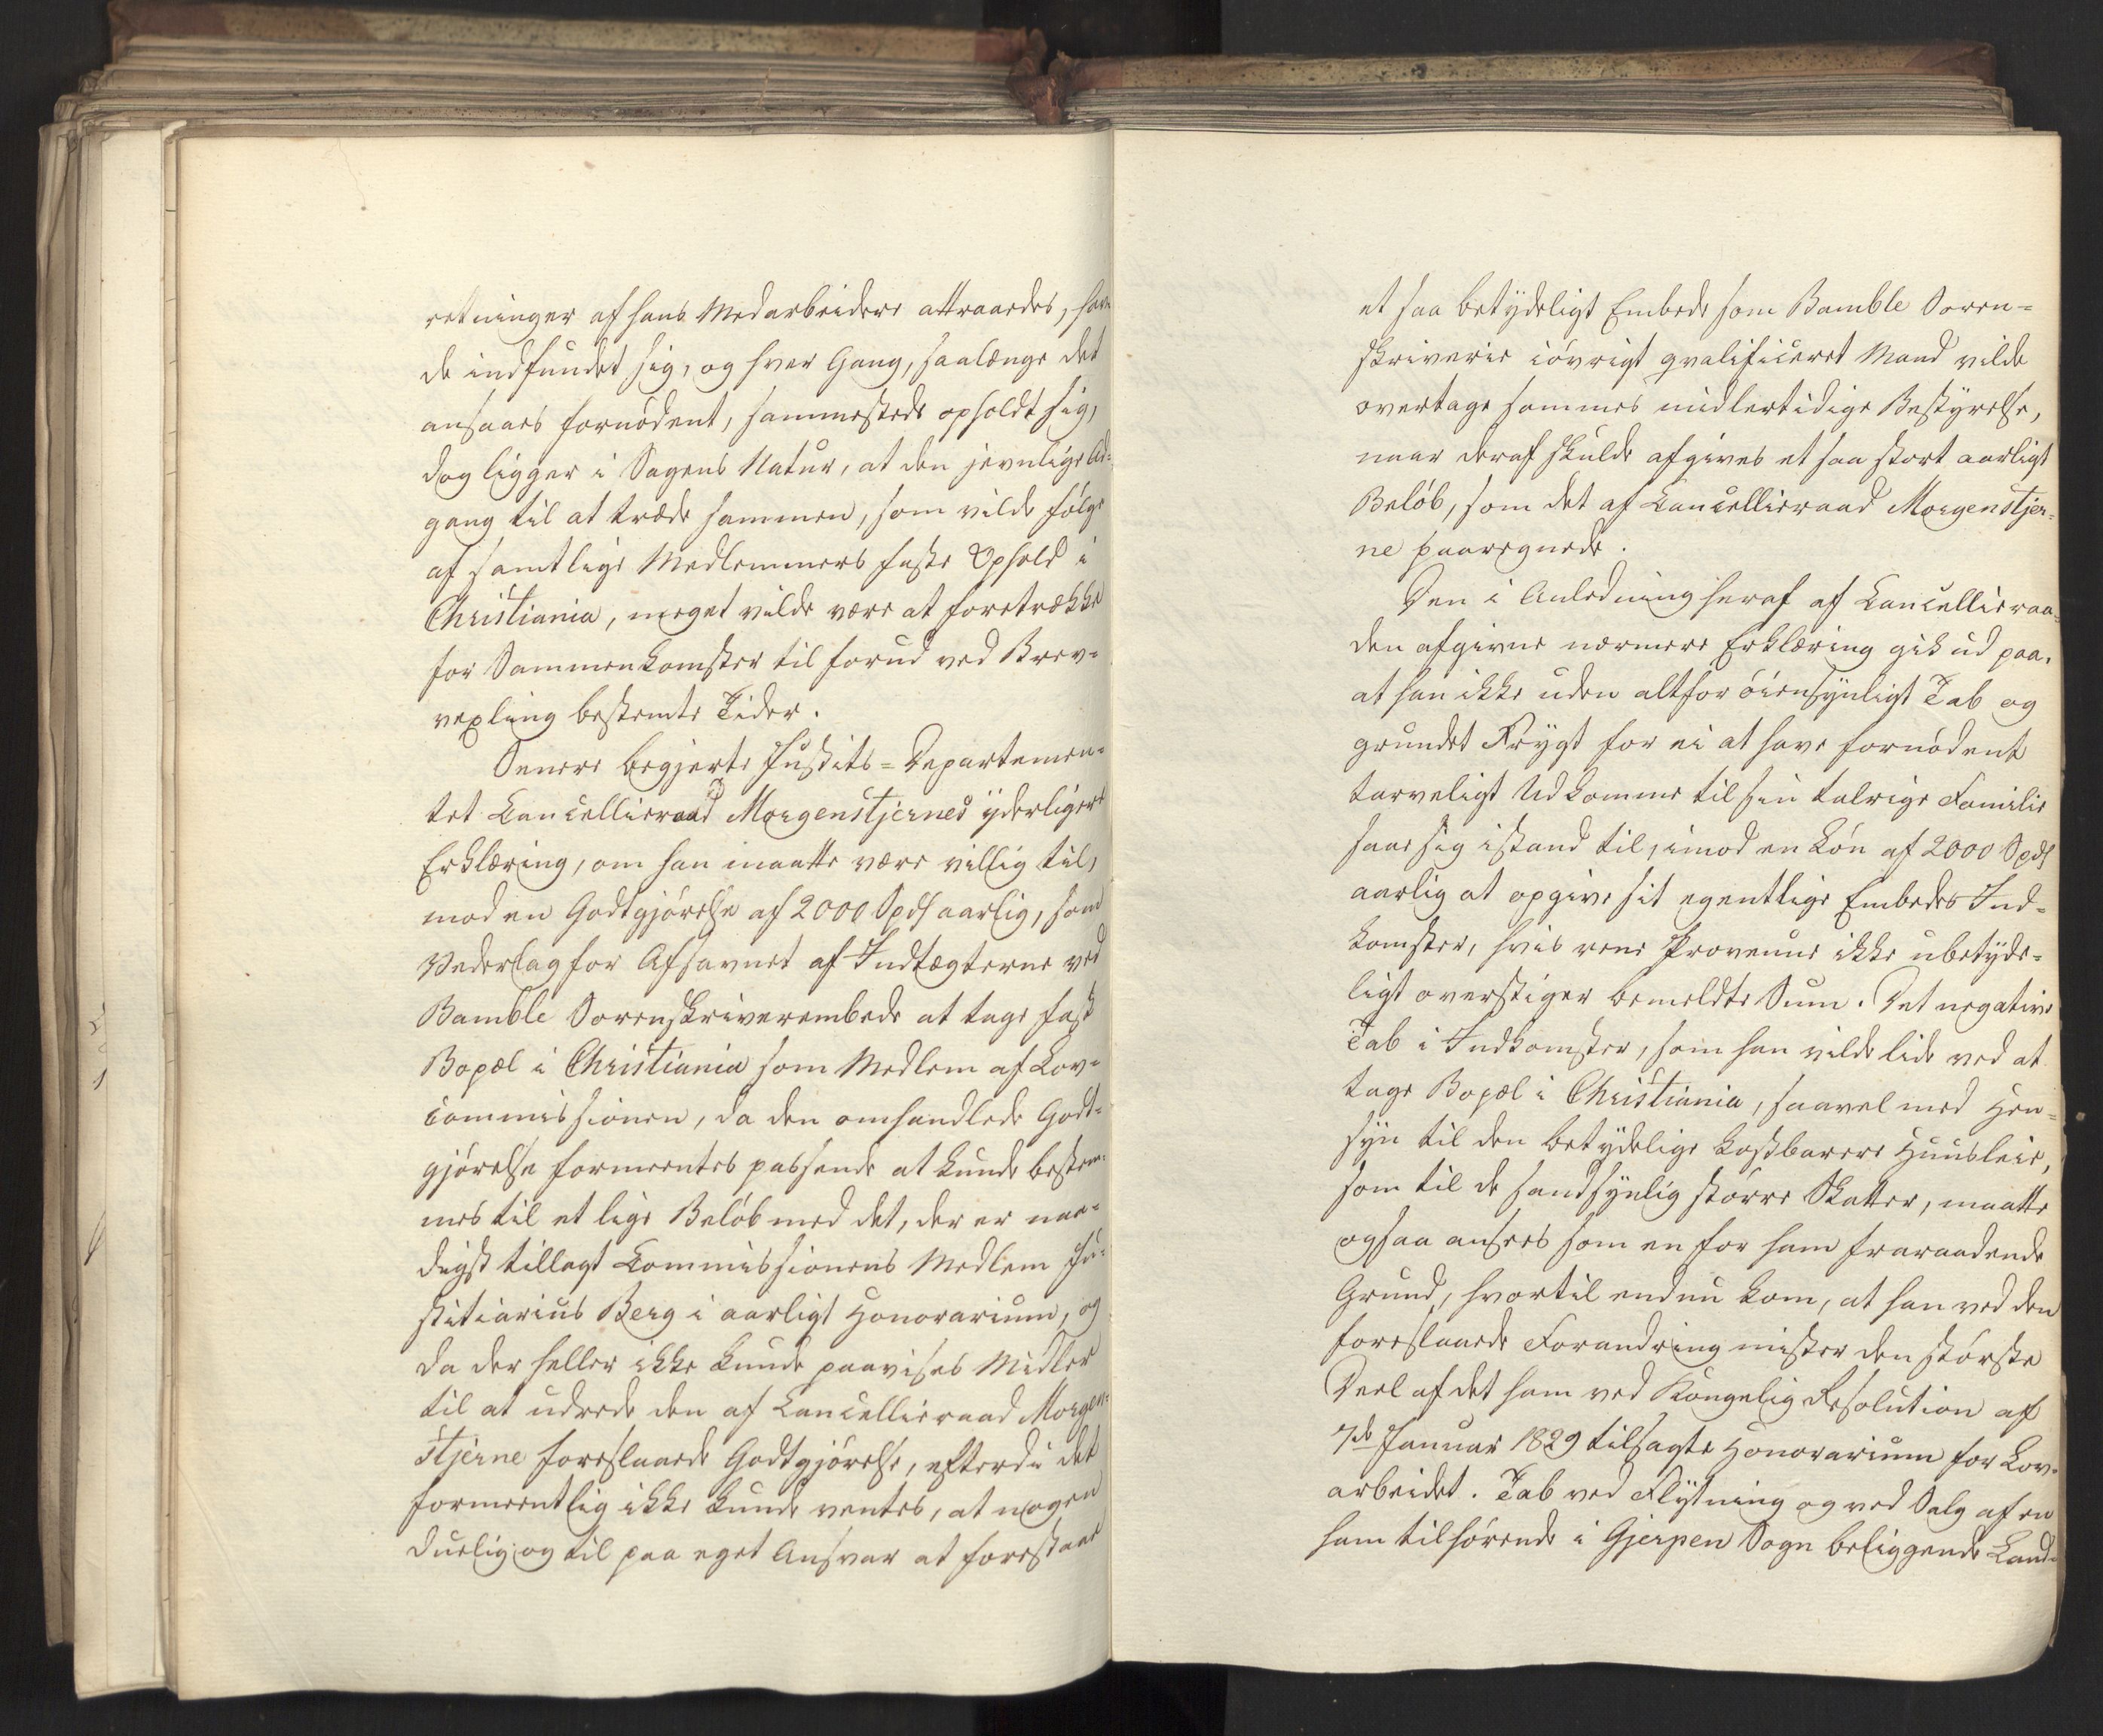 retninger af hans Medarbeidere attraaedes, hav-
de indfundet sig, og hver Gang, saalænge det
ansaaes fornødent, sammesteds opholdt sig,
dog ligger i Sagens Natur, at den jevnlige Ad-
gang til at træde sammen, som vilde følge
af samtlige Medlemmers faste Ophold i
Christiania, meget vilde være at foretrække
for Sammenkomster til forud ved Brev-
vexling bestemte Tider.
Senere begjerte Justits-Departemen-
tet Cancelliraad Morgenstjernes yderligere
Erklæring, om han maatte være villig til,
mod en Godtgjørelse af 2000 Spd aarlig, som
Vederlag for Afsavnet af Indtægterne ved
Bamble Sorenskriverembede at tage fast
Bopæl i Christiania som Medlem af Lov-
commissionen, da den omhandlede Godt-
gjørelse formeentes passende at kunde bestem-
mes til et lige Beløb med det, der er naa-
digst tillagt Commissionens Medlem Ju-
stitiarius Berg i aarligt Honorarium, og
da der heller ikke kunde paavises Midler
til at udrede den af Cancelliraad Morgen-
stjerne foreslaaede Godtgjørelse, efterdi det
formeentlig ikke kunde ventes, at nogen
duelig og til paa eget Ansvar at forestaae
et saa betydeligt Embede som Bamble Soren-
skriverie iøvrigt qvalificeret Mand vilde
overtage sammes midlertidige Bestyrelse,
naar deraf skulde afgives et saa stort aarligt
Beløb, som det af Cancellieraad Morgenstjer-
ne paaregnede.
Den i Anledning heraf af Cancellieraa-
den afgivne nærmere Erklæring gik ud paa,
at han ikke uden altfor øiensynligt Tab og
grundet Frygt for ei at have fornødent
tarveligt Udkomme til sin talrige Familie
saae sig istand til, imod en Løn af 2000 Spd
aarlig at opgive sit egentlige Embedes Ind-
komster, hvis rene Provenue ikke ubetyde-
ligt overstiger bemeldte Sum. Det negative
Tab i Indkomster, som han vilde lide ved at
tage Bopæl i Christiania, saavel med Hen-
syn til den betydelige kostbarere Huusleie,
som til de sandsynlig større Skatter, maatte
ogsaa ansees som en for ham fraraadende
Grund, hvortil endnu kom, at han ved den
foreslaaede Forandring mister den største
Deel af det ham ved Kongelig Resolution af
7de Januar 1829 tilsagte Honorarium for Lov-
arbeidet. Tab ved Flytning og ved Salg af en
ham tilhørende i Gjerpen Sogn beliggende Land-